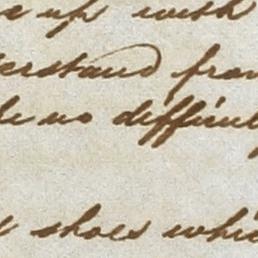 up with
erstand fro
no difficul
shoes whi